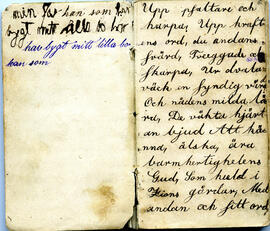 min far han som har
bygt mitt allt
har bygt mitt lilla bo
han som
Upp psaltare och
harpa, Upp kraft
ens ord, du andans
svärd, Tveeggade och
skarpa, Ur dvalan
väck en syndig värld
Och nådens milda lä
ra, De väkta hjärt
an bjud Att hä
nna, älska, ära
barmhertighetens
Gud, Som huld i
Zions gårdar, Med
andan och sitt ord